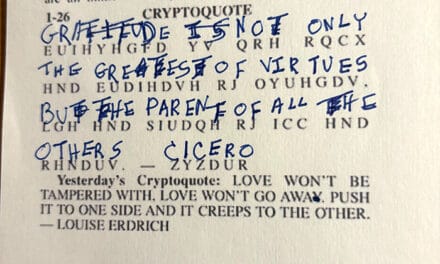 1-26 CRYPTOQUOTE
GRATITUDE IS NOT ONLY
EUIHYHGFD YV QRH RQCX
THE GREATEST OF VIRTUES
HND EUDIHDVH RJ OYUHGDV,
BUT THE PARENT OF ALL THE
LGH HND SIUDQH RJ ICC HND
OTHERS CICERO
RHNDUV. — ZYZDUR
Yesterday's Cryptoquote: LOVE WON'T BE
TAMPERED WITH, LOVE WON'T GO AWAY. PUSH
IT TO ONE SIDE AND IT CREEPS TO THE OTHER.
— LOUISE ERDRICH